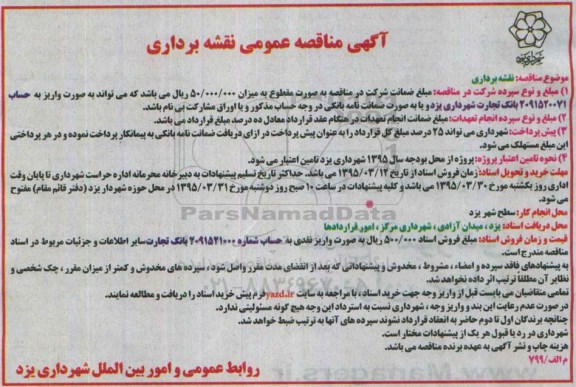 آگهی مناقصه عمومی نقشه برداری
شهرداری یزد
موضوع مناقصه: نقشه برداری
۱) مبلغ و نوع سپرده شرکت در مناقصه: مبلغ ضمانت شرکت در مناقصه به صورت مقطوع به میزان ۵۰/۰۰۰/۰۰۰ ریال می باشد که می تواند به صورت واریز به حساب
۲۰۹۱۵۲۰۰۷۱ بانک تجارت شهرداری یزد و یا به صورت ضمانت نامه بانکی در وجه حساب مذکور و یا اوراق مشارکت بی نام باشد.
۲) مبلغ و نوع سپرده انجام تعهدات: مبلغ ضمانت انجام تعهدات در هنگام عقد قرارداد معادل ده درصد مبلغ قرارداد می باشد.
۳) پیش پرداخت: شهرداری می تواند ۲۵ درصد مبلغ کل قرارداد را به عنوان پیش پرداخت در ازای دریافت ضمانت نامه بانکی به پیمانکار پرداخت نموده و در هر پرداختی
این مبلغ مستهلک می شود.
۴) نحوه تامین اعتبار پروژه: پروژه از محل بودجه سال ۱۳۹۵ شهرداری یزد تامین اعتبار می شود.
مهلت خرید و تحویل اسناد: زمان فروش اسناد از تاریخ ۱۳۹۵/۰۳/۱۲ می باشد. حداکثر تاریخ تسلیم پیشنهادات به دبیرخانه محرمانه اداره حراست شهرداری تا پایان وقت
اداری روز یکشنبه مورخ ۱۳۹۵/۰۳/۳۰ می باشد و کلیه پیشنهادات در ساعت ۱۰ صبح روز دوشنبه مورخ ۱۳۹۵/۰۳/۳۱ در محل حوزه شهردار یزد (دفتر قائم مقام) مفتوح
می شود.
محل انجام کار: سطح شهر یزد
محل دریافت اسناد: یزد، میدان آزادی، شهرداری مرکز، امور قراردادها
قیمت و زمان فروش اسناد: مبلغ فروش اسناد ۵۰۰/۰۰۰ ریال به صورت واریز نقدی به حساب شماره ۲۰۹۱۵۲۱۰۰۰ بانک تجارت سایر اطلاعات و جزئیات مربوط در اسناد
مناقصه مندرج است.
به پیشنهادهای فاقد سپرده و امضاء، مشروط، مخدوش و پیشنهاداتی که بعد از انقضای مدت مقرر واصل شود، سپرده های مخدوش و کمتر از میزان مقرر، چک شخصی و
نظایر آن مطلقا ترتیب اثر داده نخواهد شد.
تمامی متقاضیان می بایست قبل از واریز وجه جهت خرید اسناد، با مراجعه به سایت yazd.ir فرم پیش خرید اسناد را دریافت و مطالعه نمایند.
در صورت عدم رعایت این بند و واریز وجه، شهرداری نسبت به استرداد این وجه هیچ گونه مسئولیتی ندارد.
چنانچه برندگان اول تا دوم حاضر به انعقاد قرارداد نشوند سپرده های آنها به ترتیب ضبط خواهد شد.
شهرداری در رد یا قبول هر یک از پیشنهادات مختار است.
هزینه چاپ و نشر آگهی به عهده برنده مناقصه می باشد.
م الف/ ۷۹۹
روابط عمومی و امور بین الملل شهرداری یزد
ParsNamadData